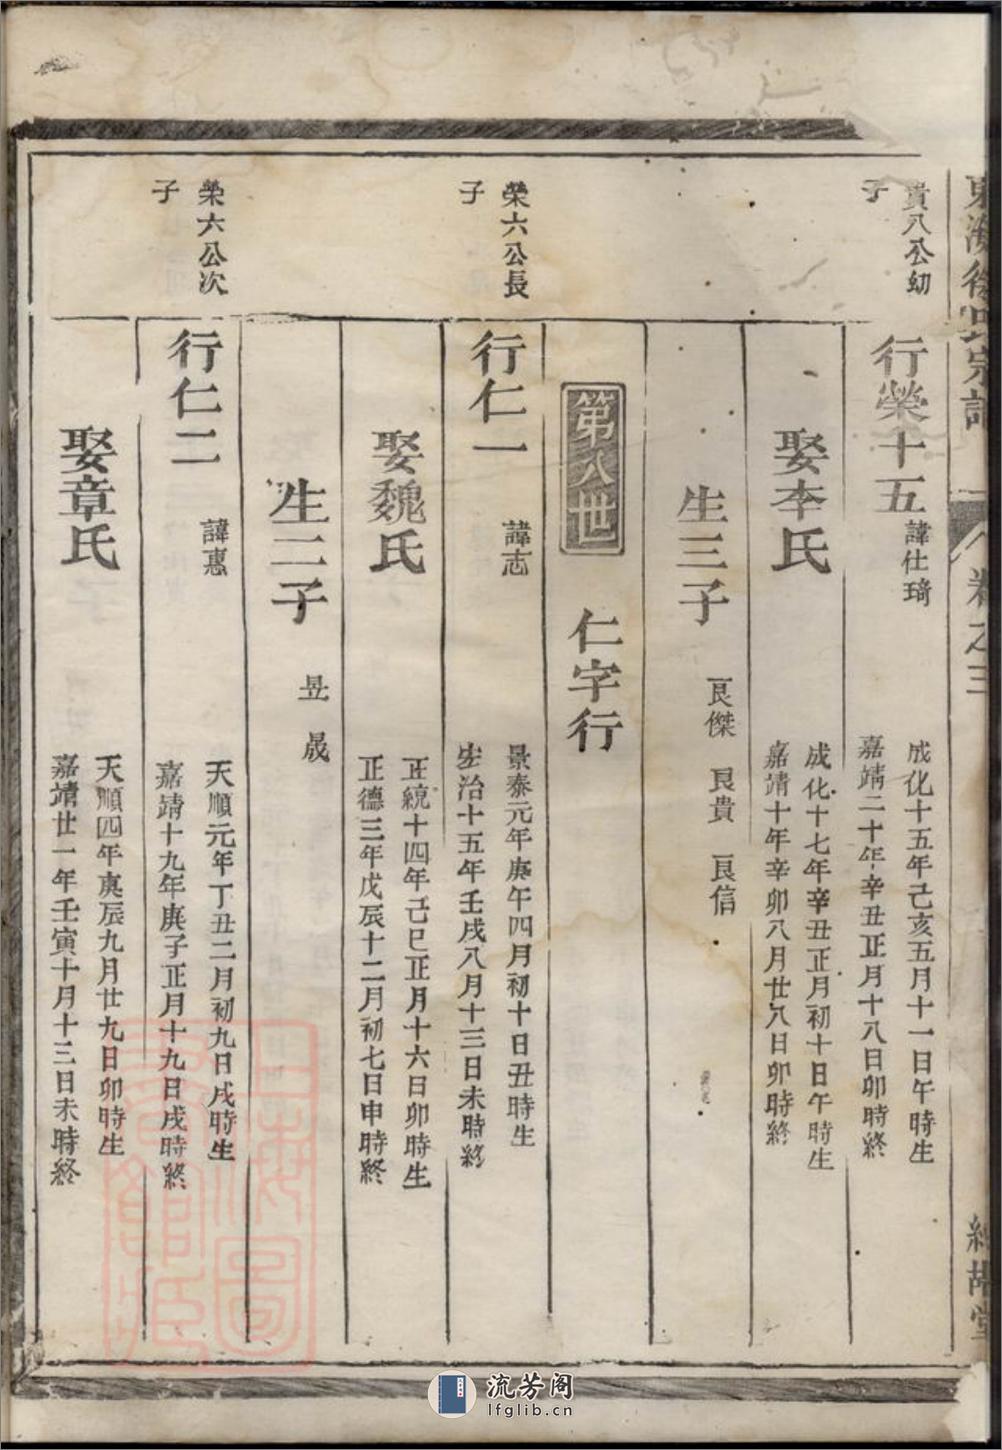 東海徐氏宗譜
卷之三
貴八公幼
子
行榮十五
諱仕琦
成化十五年己亥五月十一日午時生
嘉靖二十年辛丑正月十八日卯時終
娶李氏
成化十七年辛丑正月初十日午時生
嘉靖十年辛卯八月廿八日卯時終
生三子
良傑 良貴 良信
第八世
仁字行
榮六公長
子
行仁一
諱志
景泰元年庚午四月初十日丑時生
弘治十五年壬戌八月十三日未時終
娶魏氏
正統十四年己巳正月十六日卯時生
正德三年戊辰十二月初七日申時終
生二子
昱 晟
榮六公次
子
行仁二
諱惠
天順元年丁丑二月初九日戌時生
嘉靖十九年庚子正月十九日戌時終
娶章氏
天順四年庚辰九月廿九日卯時生
嘉靖廿一年壬寅十月十三日未時終
上海圖書館藏
流芳阁
lfglib.cn